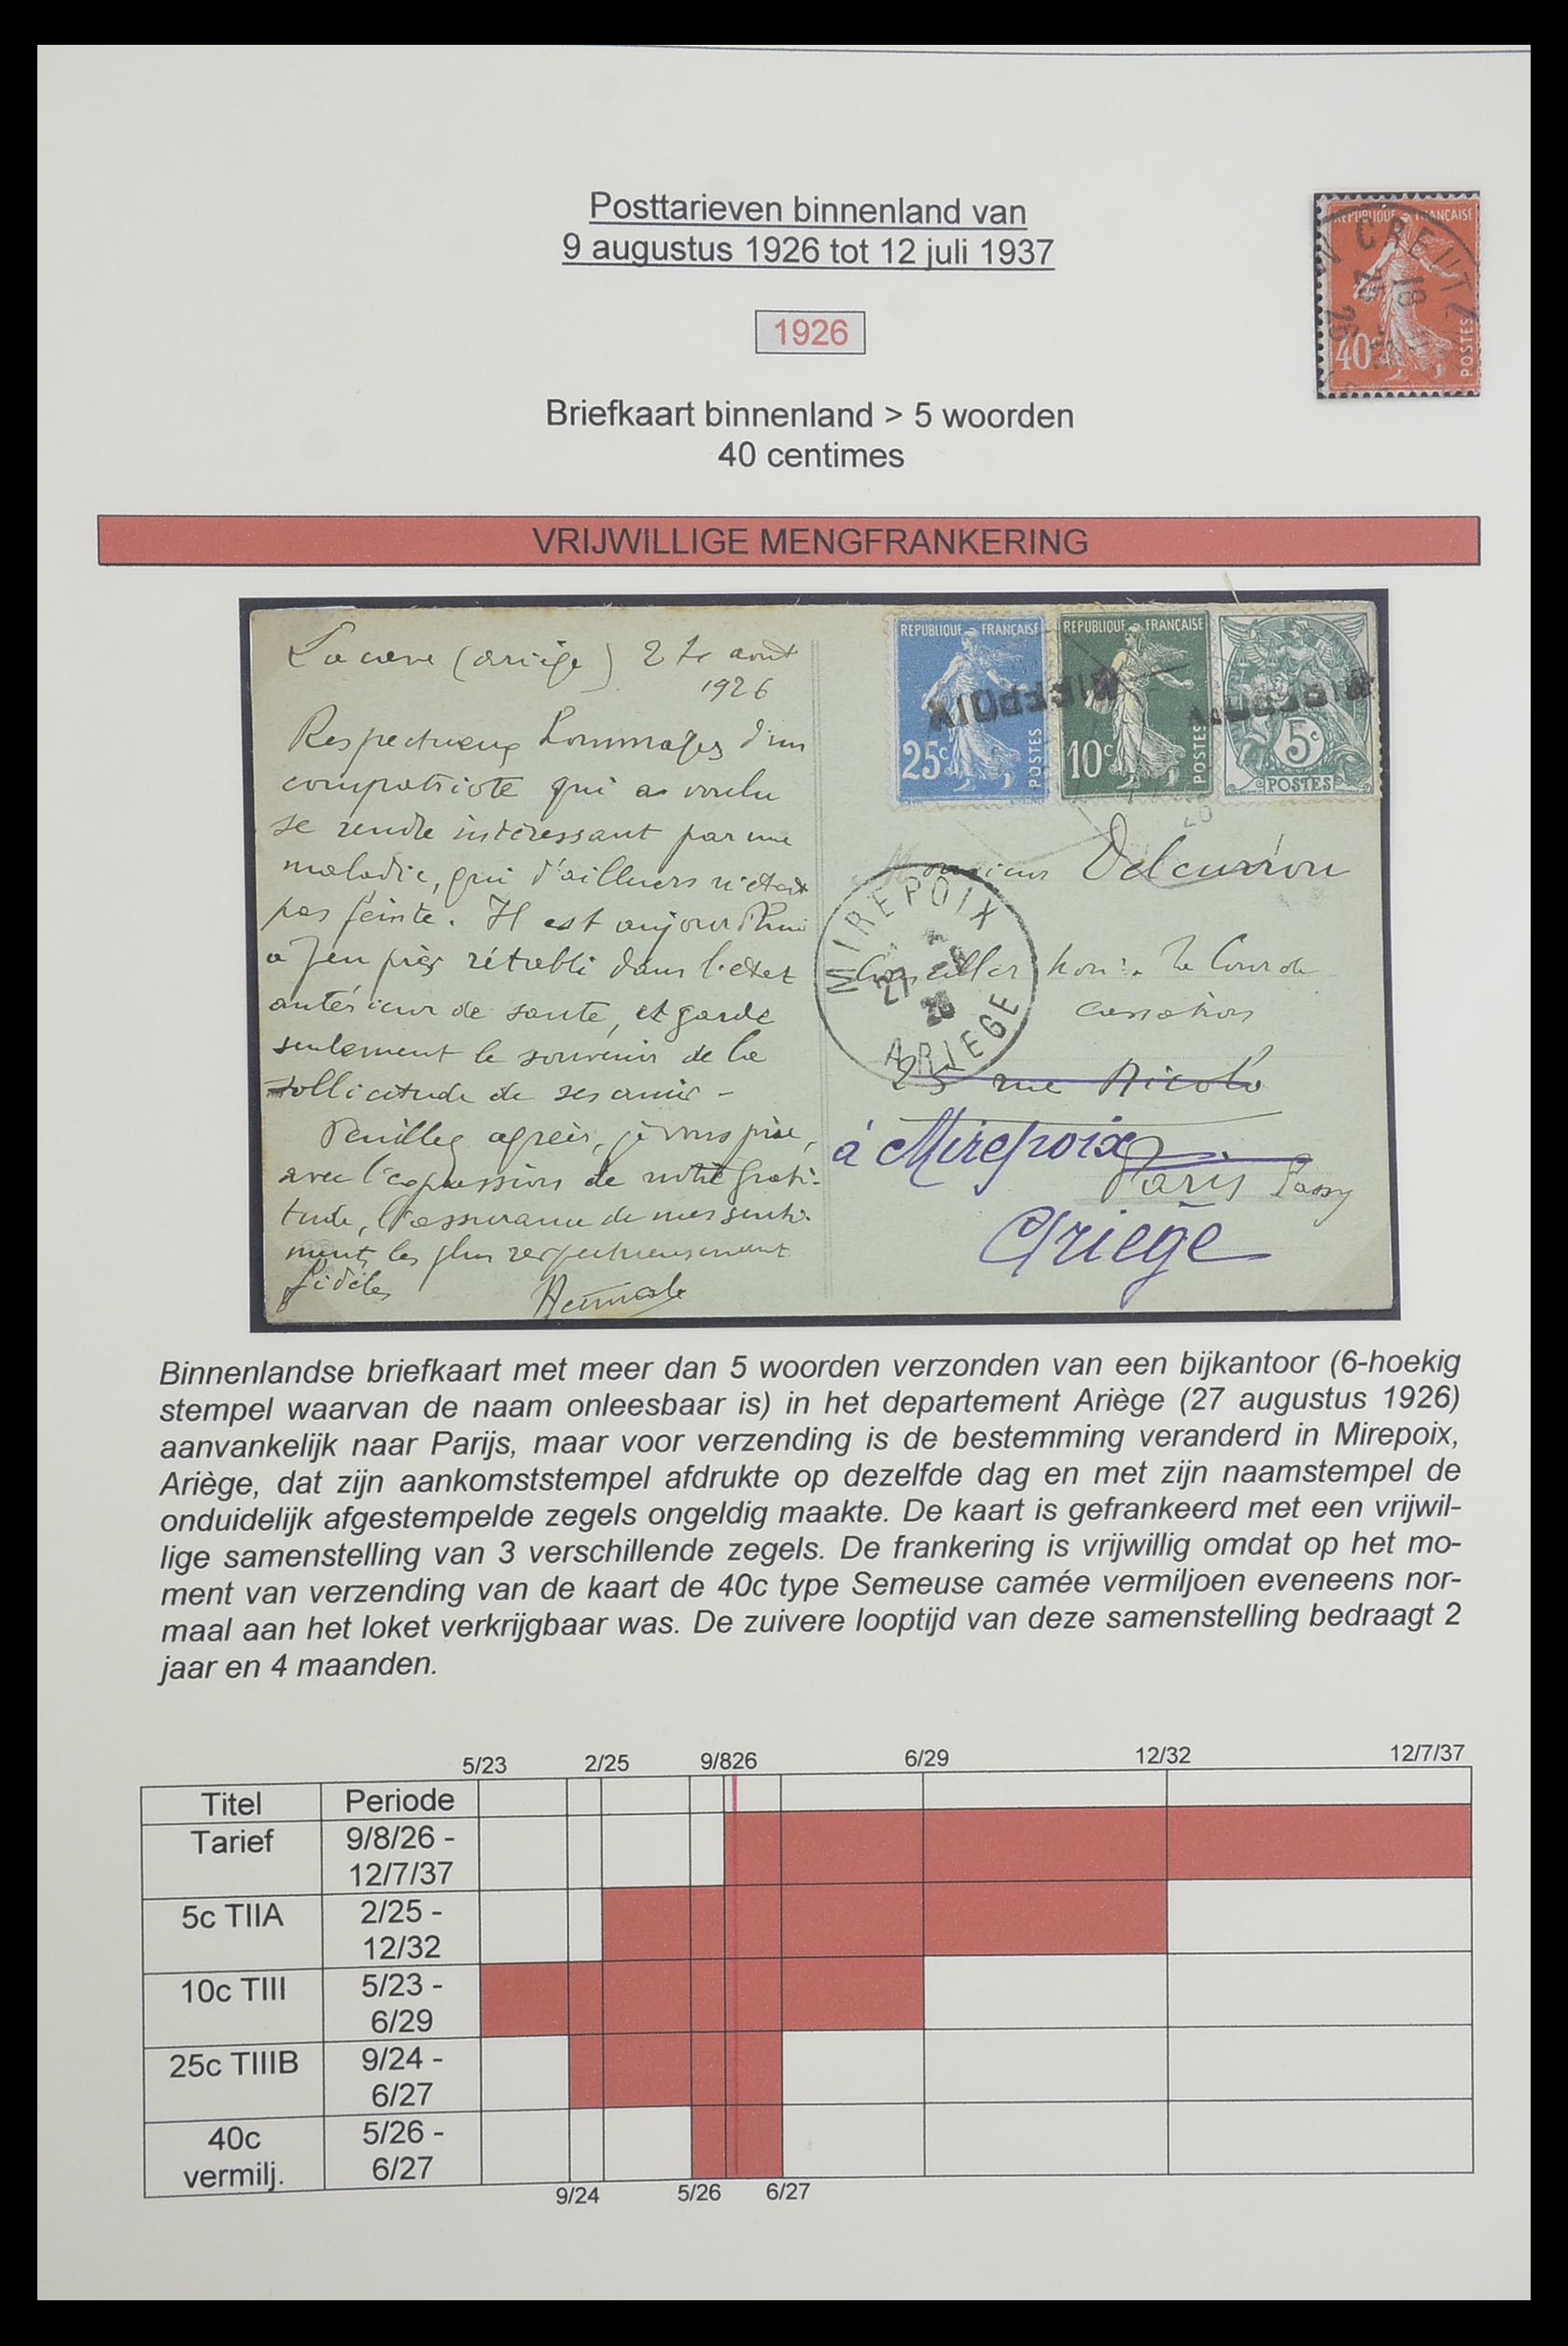 Posttarieven binnenland van
9 augustus 1926 tot 12 juli 1937
REPUBLIQUE FRANÇAISE
CREUTZ
18
25
26
40c
POSTES
1926
Briefkaart binnenland > 5 woorden
40 centimes
VRIJWILLIGE MENGFRANKERING
(Ariège) 27 août
1926
Respectueux hommages d'un
compatriote qui a voulu
se rendre intéressant par une
maladie, qui d'ailleurs n'était
pas feinte. Il est aujourd'hui
à peu près rétabli dans l'état
antérieur de santé, et garde
seulement le souvenir de la
sollicitude de ses amis -
Veuillez agréer, je vous prie,
avec l'expression de notre grati-
tude, l'assurance de mes senti-
ments les plus respectueusement
fidèles
REPUBLIQUE FRANÇAISE
25c
POSTES
REPUBLIQUE FRANÇAISE
10c
POSTES
5c
POSTES
MIREPOIX
MIREPOIX
Monsieur
Conseiller hon. à la Cour de
cassation
MIREPOIX
27
26
ARIEGE
25 rue Nicolo
à Mirepoix
Paris Passy
Ariège
Binnenlandse briefkaart met meer dan 5 woorden verzonden van een bijkantoor (6-hoekig
stempel waarvan de naam onleesbaar is) in het departement Ariège (27 augustus 1926)
aanvankelijk naar Parijs, maar voor verzending is de bestemming veranderd in Mirepoix,
Ariège, dat zijn aankomststempel afdrukte op dezelfde dag en met zijn naamstempel de
onduidelijk afgestempelde zegels ongeldig maakte. De kaart is gefrankeerd met een vrijwil-
lige samenstelling van 3 verschillende zegels. De frankering is vrijwillig omdat op het mo-
ment van verzending van de kaart de 40c type Semeuse camée vermiljoen eveneens nor-
maal aan het loket verkrijgbaar was. De zuivere looptijd van deze samenstelling bedraagt 2
jaar en 4 maanden.
5/23 2/25 9/826 6/29 12/32 12/7/37
Titel Periode
Tarief 9/8/26 -
12/7/37
5c TIIA 2/25 -
12/32
10c TIII 5/23 -
6/29
25c TIIIB 9/24 -
6/27
40c 5/26 -
vermilj. 6/27
9/24 5/26 6/27